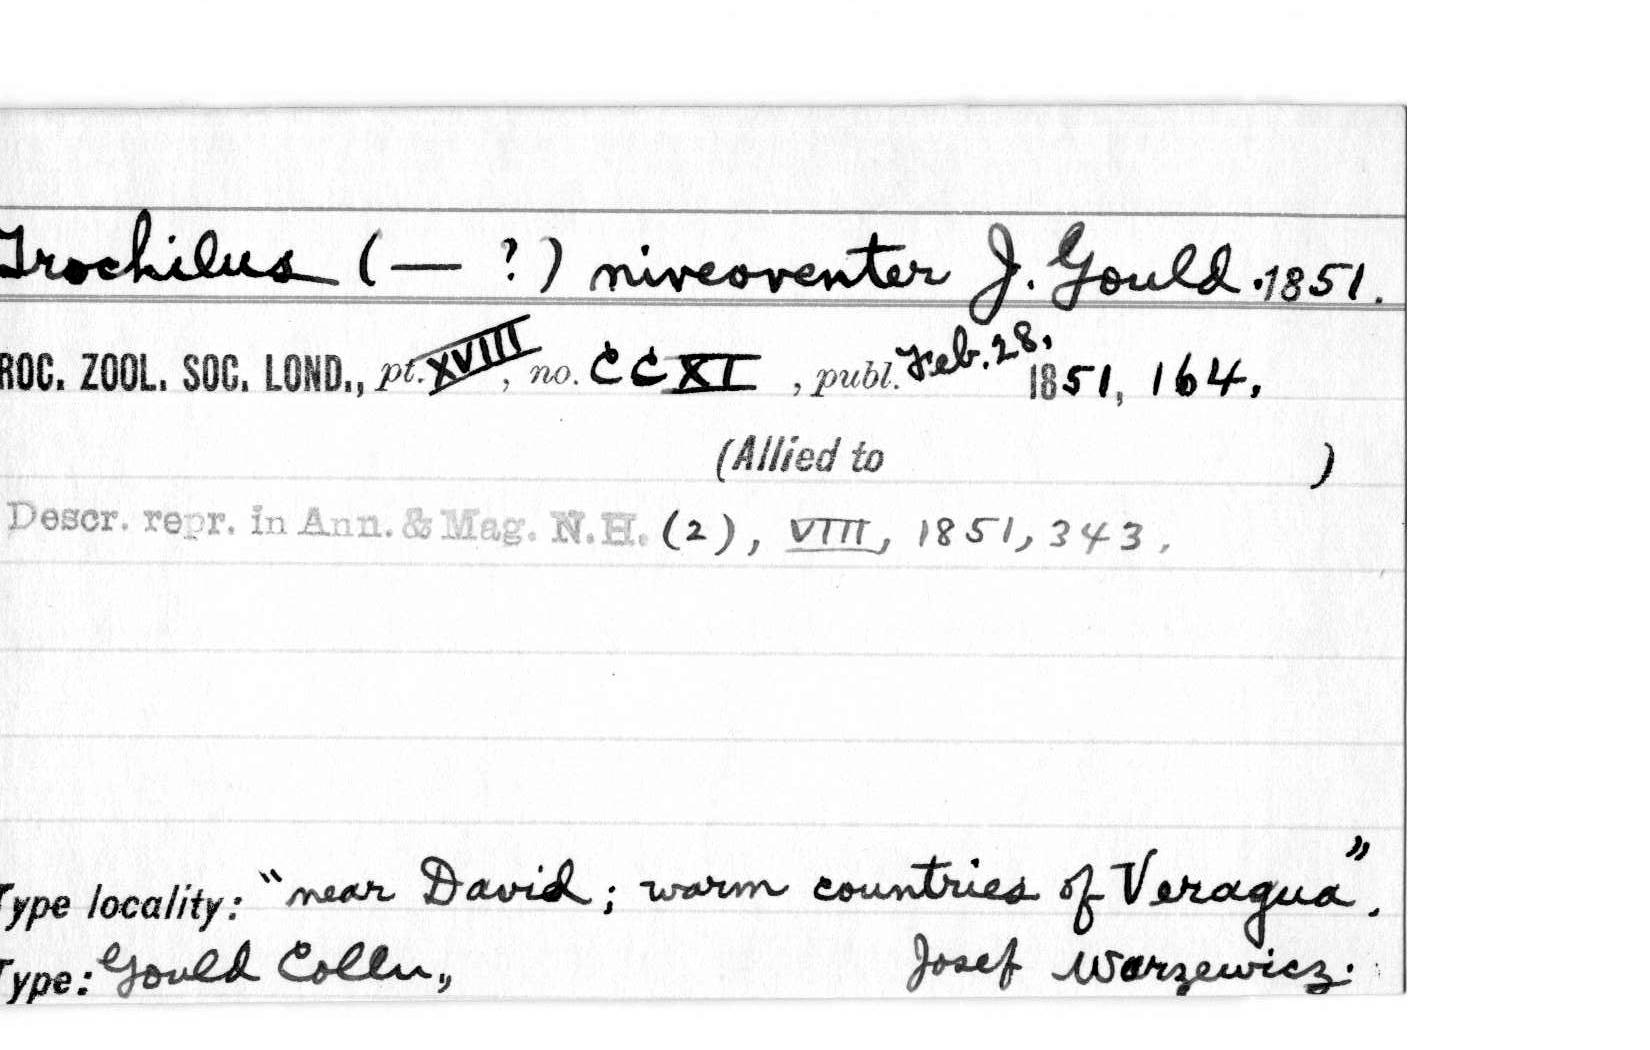 Trochilus (— ?) niveoventer J. Gould. 1851.
ROC. ZOOL. SOC. LOND., pt. XVIII, no. CCXI, publ. Feb. 28, 1851, 164.
(Allied to )
Descr. repr. in Ann. & Mag. N.H. (2), VIII, 1851, 343.
Type locality: "near David; warm countries of Veragua".
Type: Gould Colln., Josef Warzewicz.